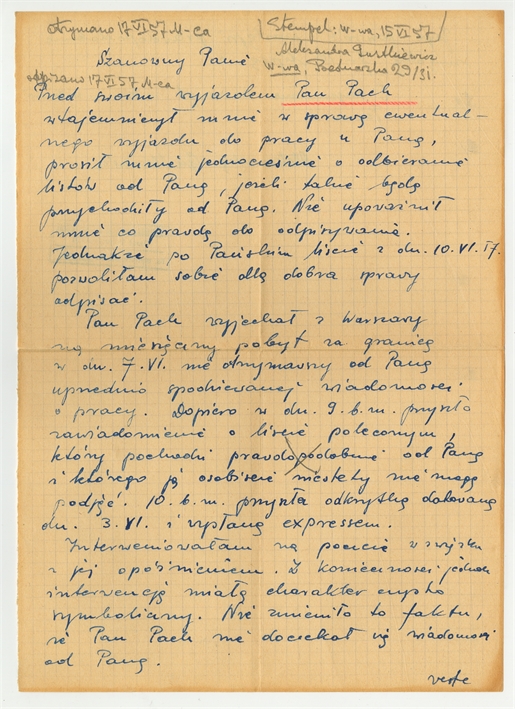 otrzymano 17 VI 57 M-ca
Stempel: W-wa, 15 VI 57
Aleksandra
W-wa, Bednarska 29/31.
Szanowny Panie
odpisano 17 VI 57 M-ca
Przed swoim wyjazdem Pan Pach
wtajemniczył mnie w sprawę ewentual-
nego wyjazdu do pracy u Pana,
prosił mnie jednocześnie o odbieranie
listów od Pana, jeżeli takie będą
przychodziły od Pana. Nie upoważnił
mnie co prawda do odpisywania.
Jednakże po Pańskim liście z dn. 10.VI.57.
pozwoliłam sobie dla dobra sprawy
odpisać.
Pan Pach wyjechał z Warszawy
na miesięczny pobyt za granicą
w dn. 7.VI. nie otrzymawszy od Pana
uprzednio spodziewanej wiadomości
o pracy. Dopiero w dn. 9.b.m. przyszło
zawiadomienie o liście poleconym,
który pochodzi prawdopodobnie od Pana
i którego ja osobiście niestety nie mogę
podjąć. 10.b.m. przyszła odkrytka datowana
dn. 3.VI. i wysłana expressem.
Interweniowałam na poczcie w związku
z jej opóźnieniem. Z konieczności jednak
interwencja miała charakter czysto
symboliczny. Nie zmieniło to faktu,
że Pan Pach nie doczekał się wiadomości
od Pana.
verte